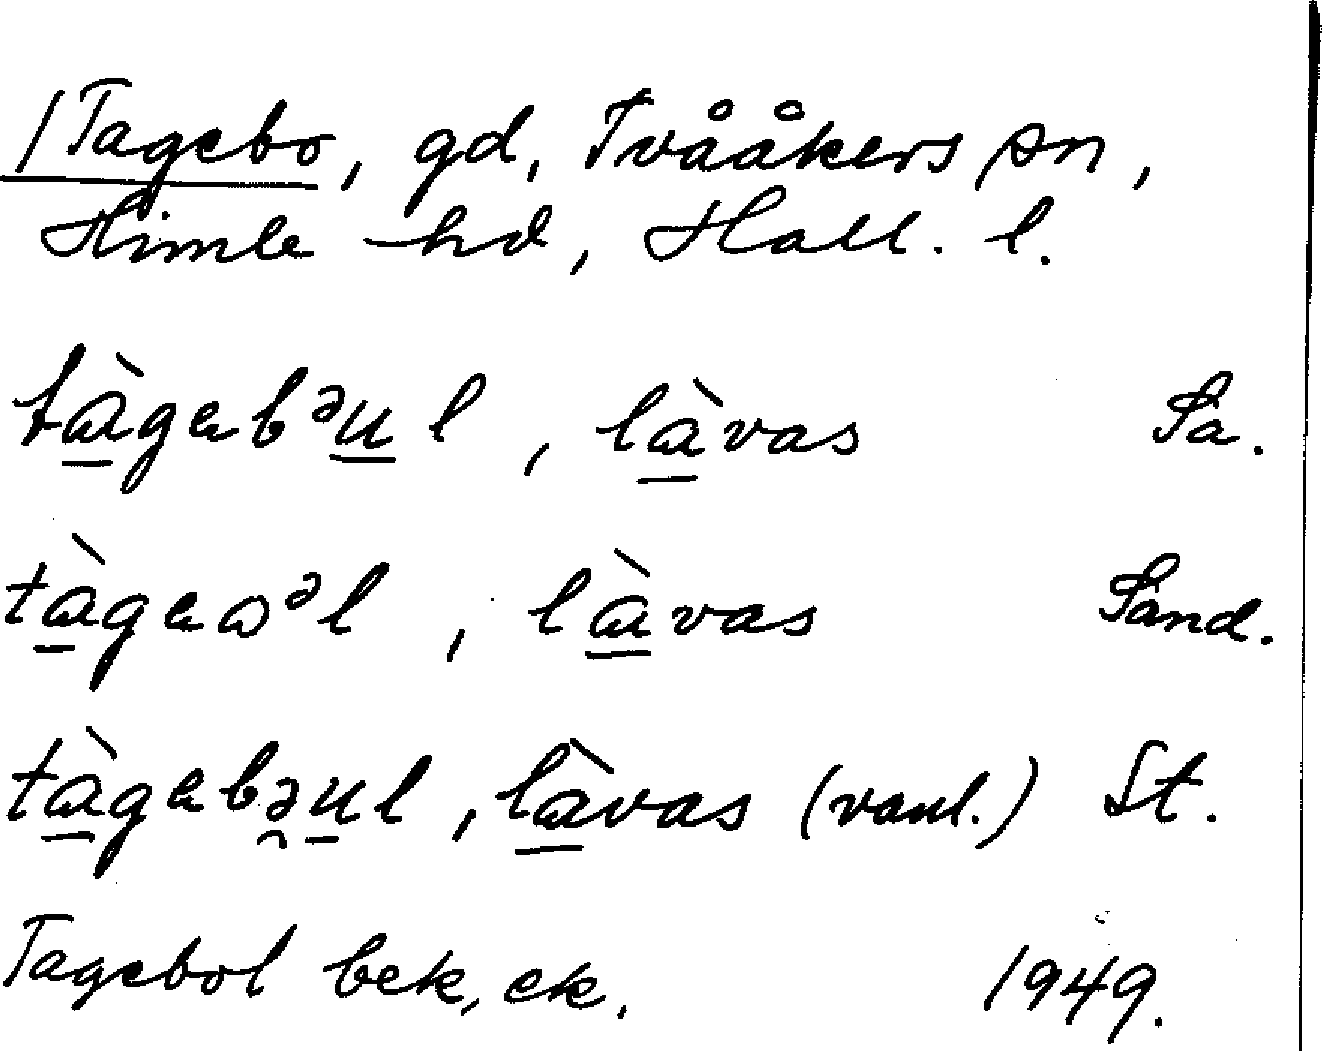 /Tagebo, gd, Tvååkers sn,
Himle hd, Hall. l.
tɑ̀gebᵊul, lɑ̀vas Sa.
tɑ̀geɷᵊl, lɑ̀vas Sand.
tɑ̀gebə̯ul, lɑ̀vas (vanl.) St.
Tagebol bek, ek. 1949.